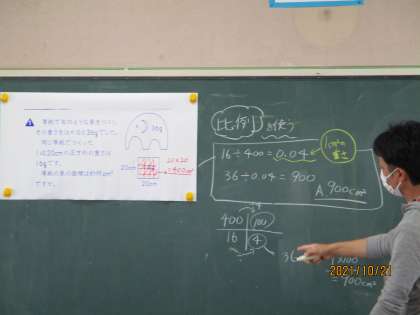 厚紙で右のような象をつくり、
その重さをはかると36gでした。
同じ厚紙でつくった
1辺20cmの正方形の重さは
16gです。
厚紙の象の面積は約何cm²
ですか。
36g
20cm
20cm
20×20
=400cm²
比例を使う
16÷400=0.04
1cm²の
重さ
36÷0.04=900
A 900cm²
400 100
16 4
×100
=900cm²
2021/10/21